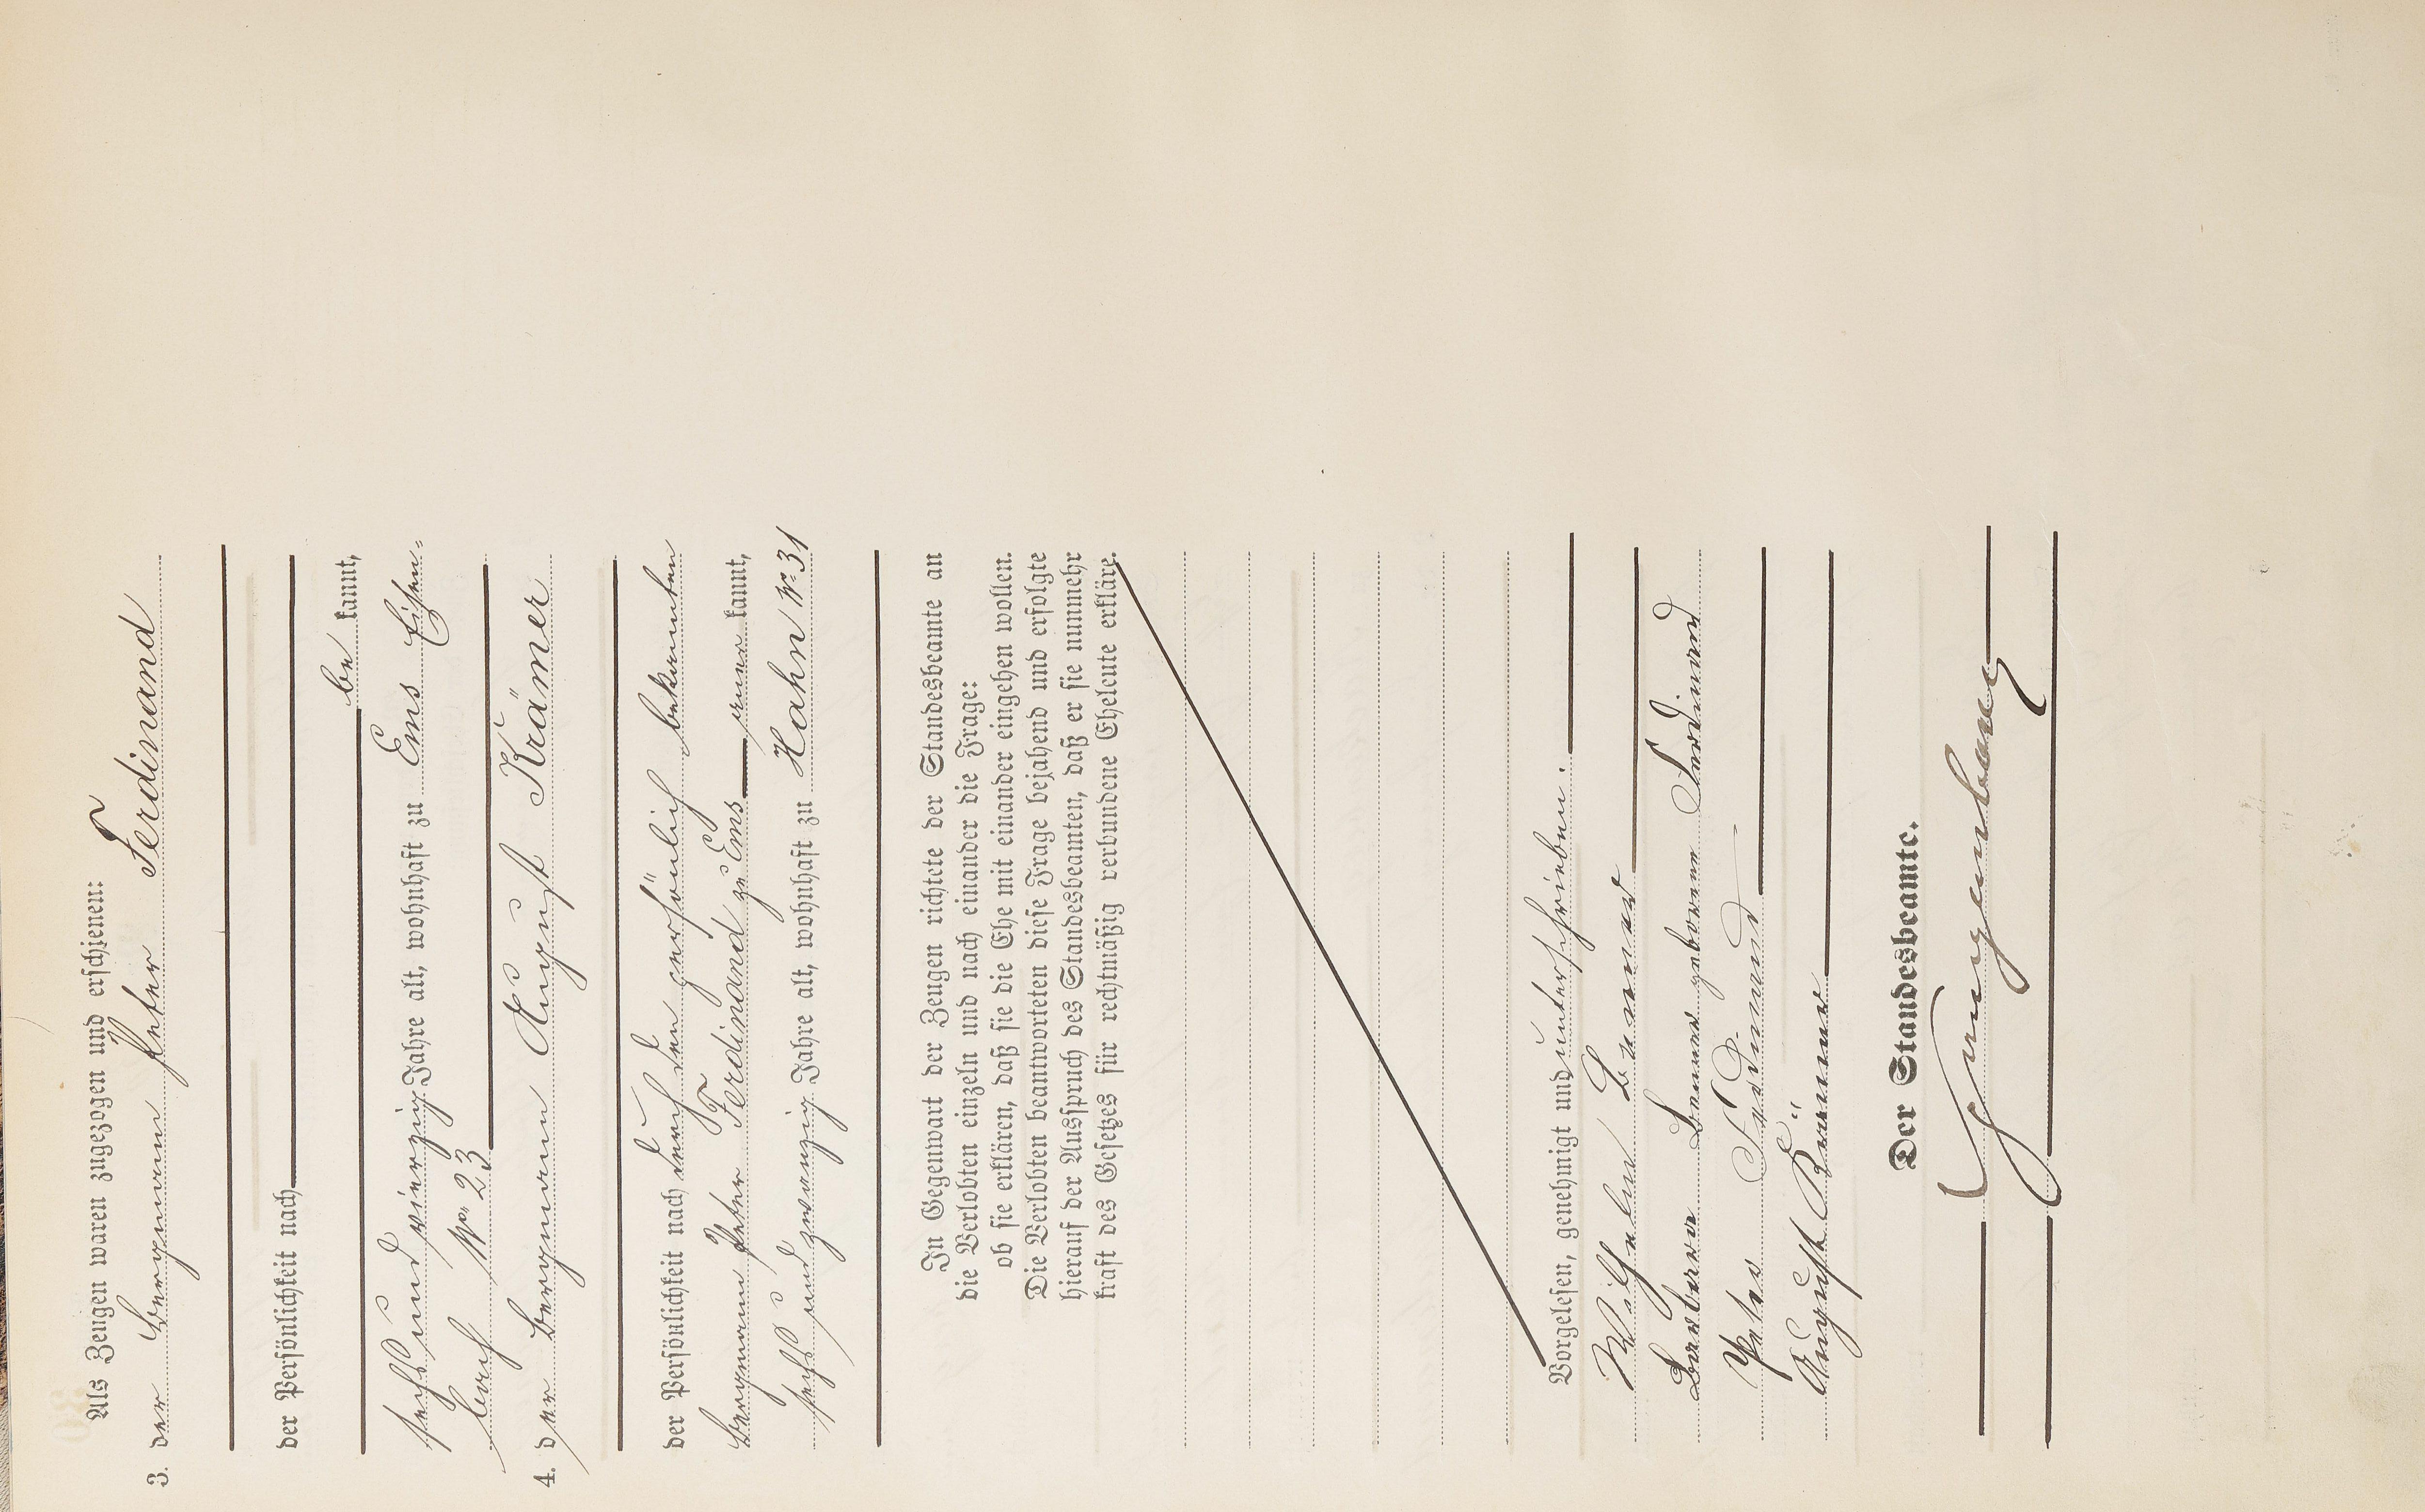 Als Zeugen waren zugezogen und erschienen:
3. der Bergmann Peter Ferdinand
der Persönlichkeit nach
be kannt,
sechs und vierzig Jahre alt, wohnhaft zu Ems Eisen-
bach No. 23
4. der Bergmann August Krämer
der Persönlichkeit nach durch den persönlich bekannten
Bergmann Peter Ferdinand zu Ems aner kannt,
sechs und zwanzig Jahre alt, wohnhaft zu Hahn No 31
In Gegenwart der Zeugen richtete der Standesbeamte an
die Verlobten einzeln und nach einander die Frage:
ob sie erklären, daß sie die Ehe mit einander eingehen wollen.
Die Verlobten beantworteten diese Frage bejahend und erfolgte
hierauf der Ausspruch des Standesbeamten, daß er sie nunmehr
kraft des Gesetzes für rechtmäßig verbundene Eheleute erkläre.
Vorgelesen, genehmigt und unterschrieben.
Wilhelm
Barbara geborene Ferdinand
Peter Ferdinand
August Krämer
Der Standesbeamte.